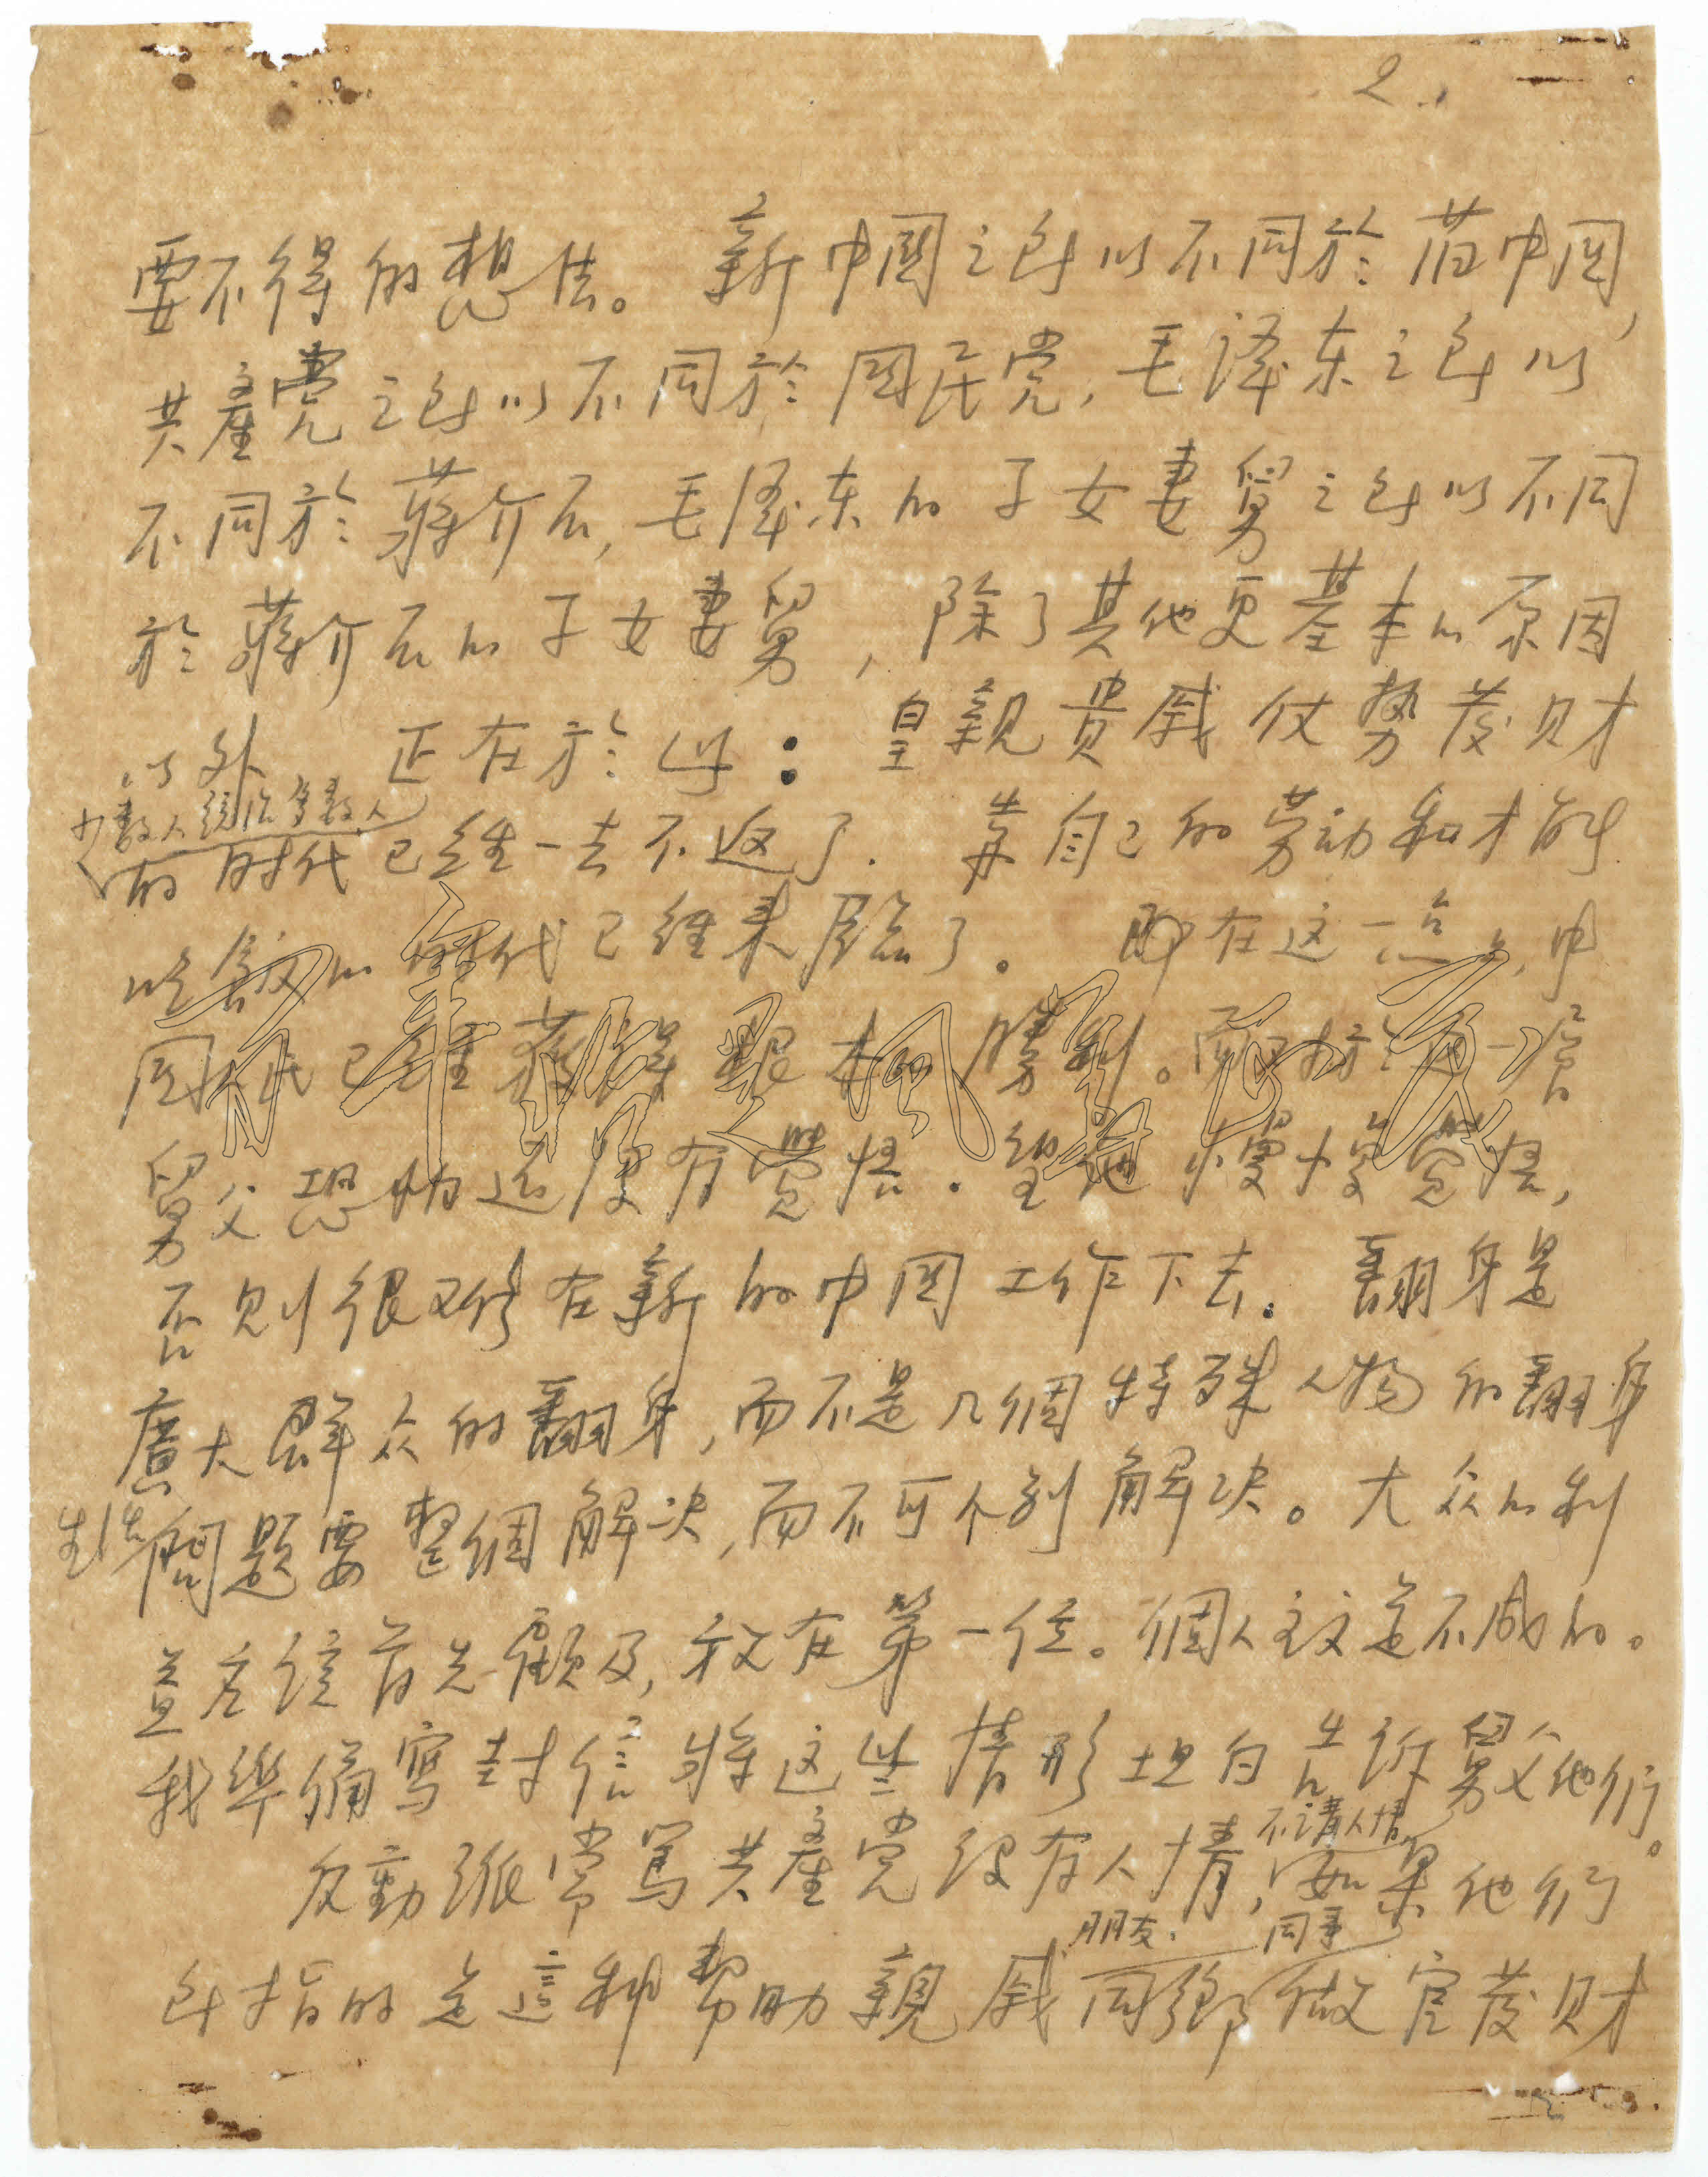 2.
要不得的想法。 新中国之所以不同於旧中国,
共產党之所以不同於国民党, 毛泽东之所以
不同於蔣介石, 毛泽东的子女妻舅之所以不同
於蔣介石的子女妻舅, 除了其他更基本的原因
以外 正在於此: 皇親貴戚仗勢发财
少数人统治多数人
的时代已经一去不返了. 靠自己的劳动和才能
吃飯的时代已经来臨了。 即在这一点上, 中
国人民已经獲得根本勝利。而对於这一層
舅父恐怕还沒有覺悟. 望他慢慢覚悟,
否则很难在新的中国工作下去. 翻身是
廣大群众的翻身, 而不是几個特殊人物的翻身
生活問題要整個解决, 而不可个别解决。大众的利
益应該首先顧及, 放在第一位。個人主义是不成的。
我準備写封信將这些情形坦白告訴舅父他們。
不講人情
反動派常駡共產党沒有人情, 如果他們
朋友. 同事
所指的是這种幫助親戚同鄉做官发财